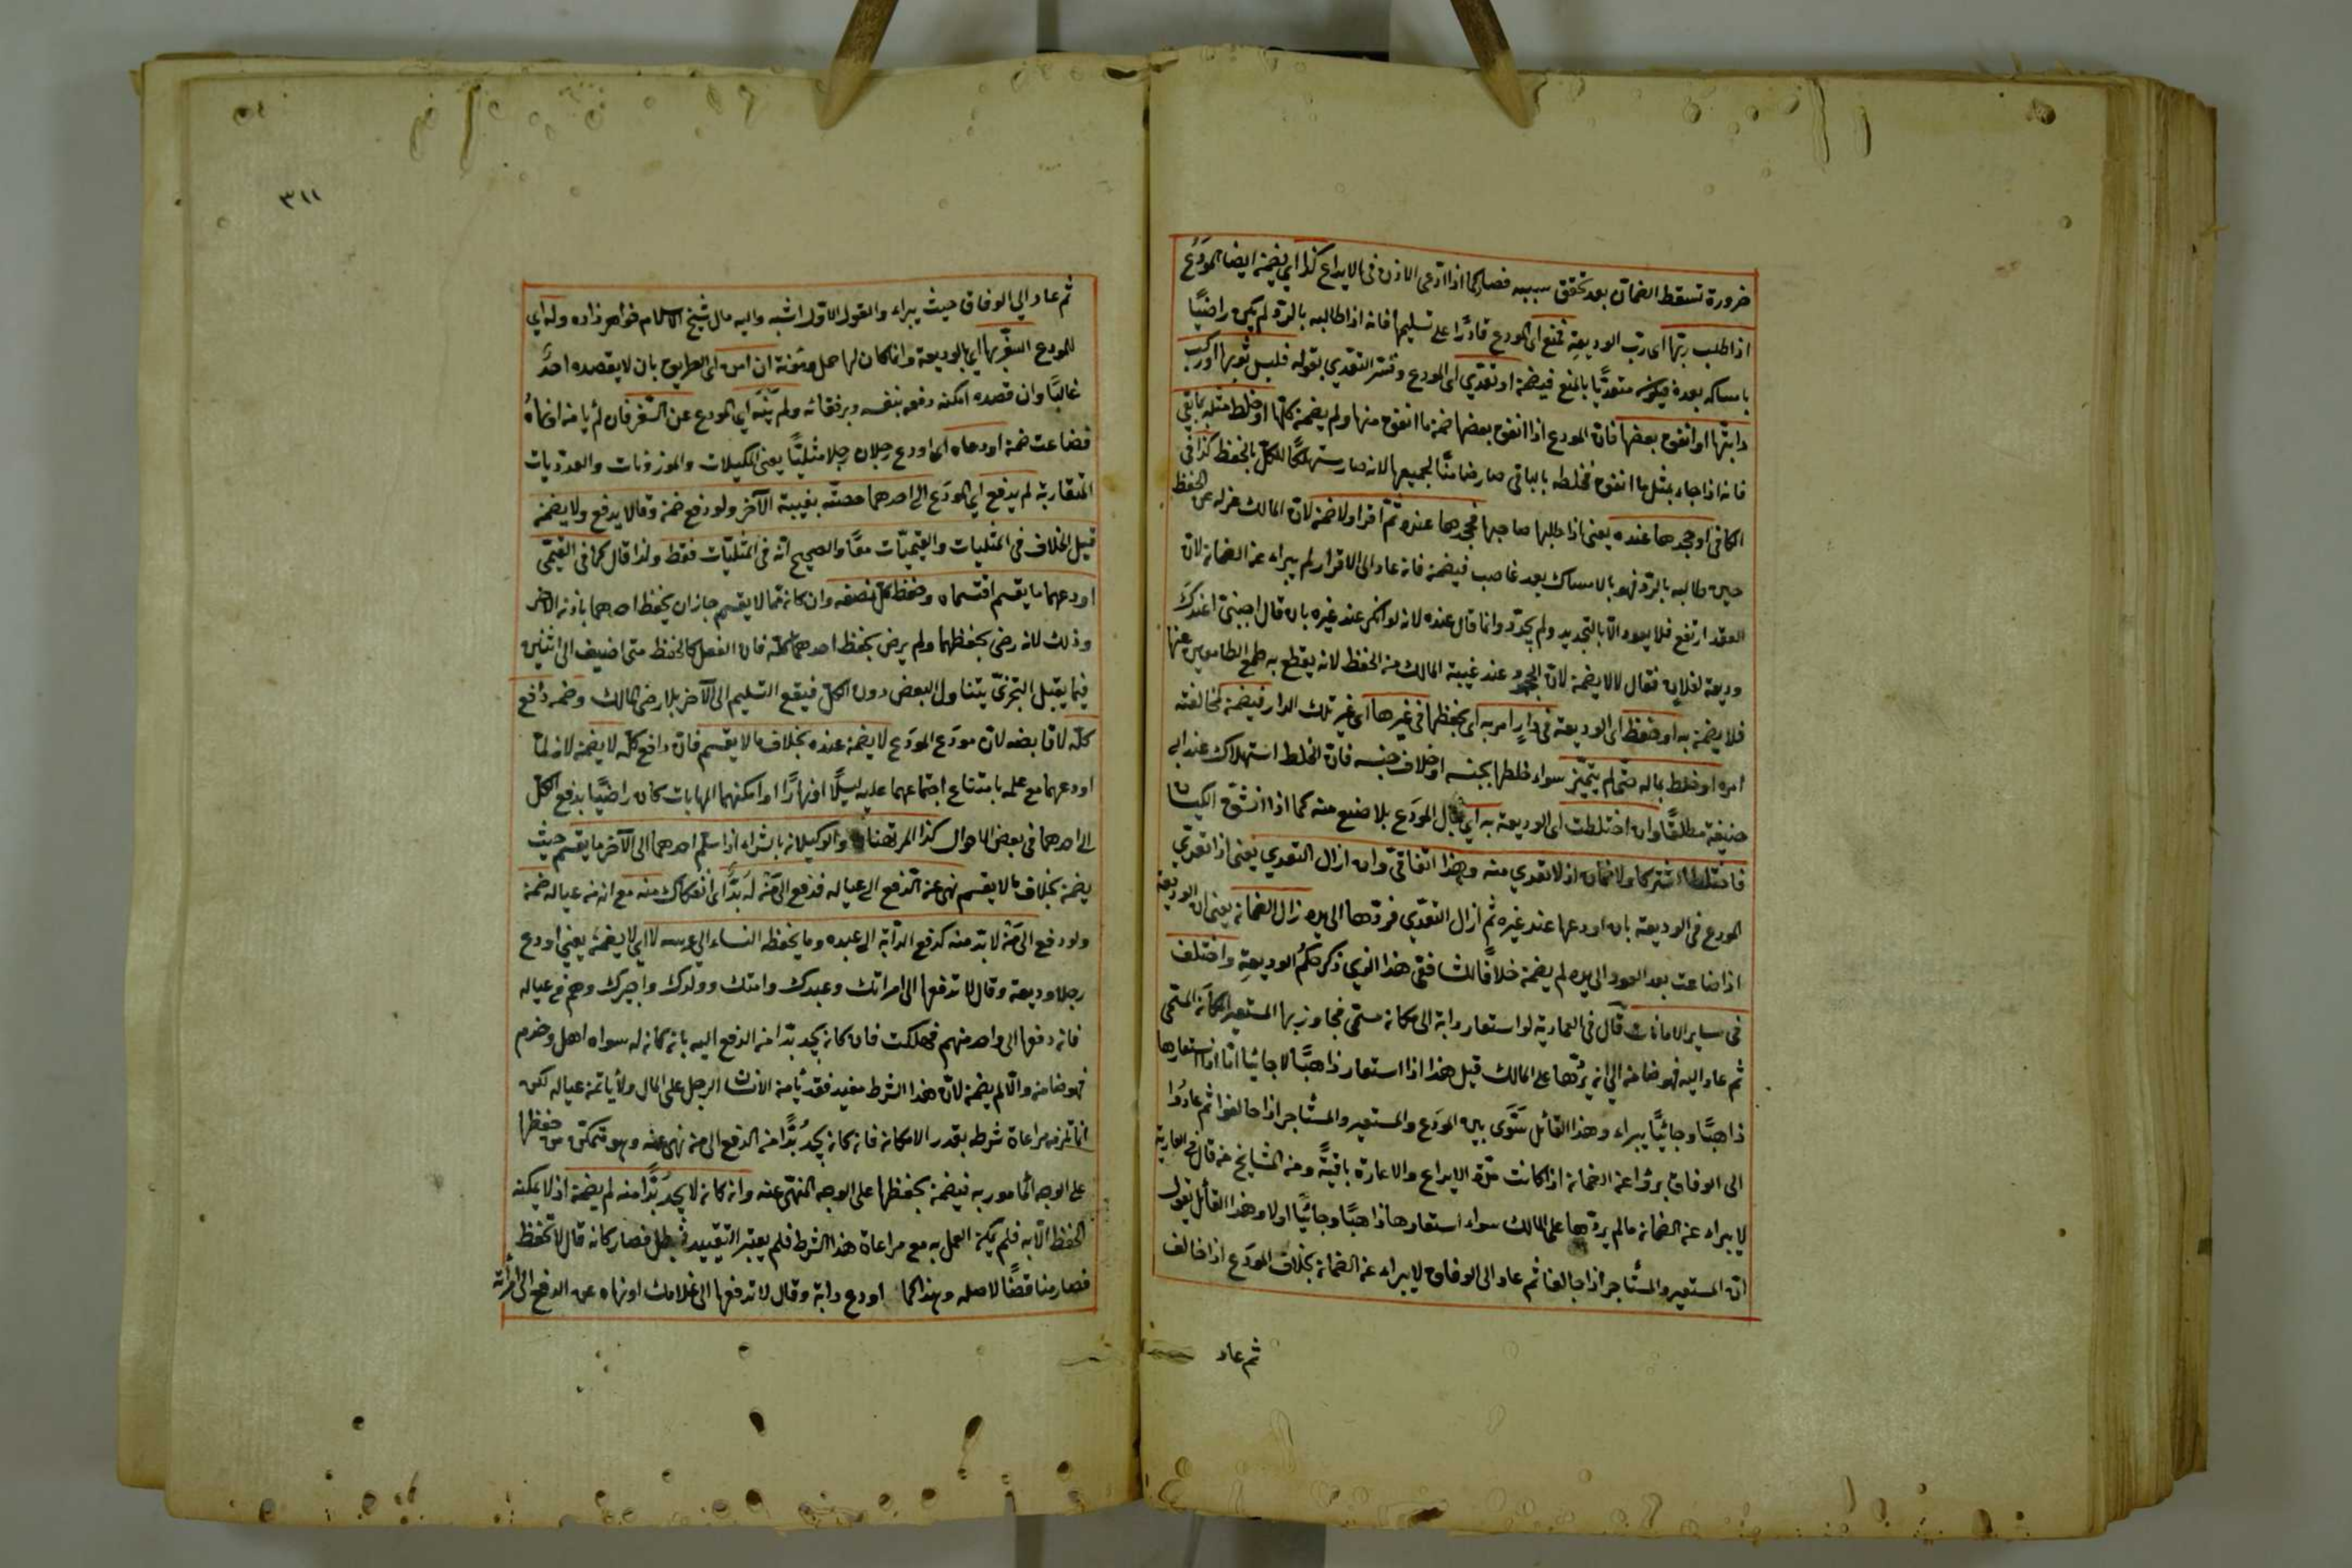 ضرورة تسقط الضمان بعد تحقق سببه فصار كما اذا ادّعى الاذن فى الايداع كذا اى يضمن ايضا المودَع
اذا طلب ربّها اى ربّ الوديعةِ فمنع اى المودع قادرًا على تسليمها فانه اذا طالبه بالردّ لم يكن راضيًا
بامساكه بعده فيكون متعدّيًا بالمنع فيضمنه او تعدّى اى المودع وفسّر التعدّي بقوله فلبس ثوبها او ركب
دابتها او انفق بعضها فان المودع اذا انفق بعضها ضمن ما انفق منها ولم يضمن كلّها او خلط مثله بما بقى
فانه اذا جاء بمثل ما انفق فخلطه بالباقى صار ضامنًا لجميعها لانه صار مستهلكًا للكلّ بالخلط كذا فى
الكافى او جحدها عنده يعنى اذا طلبها صاحبها فجحدها عنده ثم اقرّ اولا ضمن لانّ المالك عزله عن الحفظ
حين طالبه بالردّ فهو بالامساك بعد غاصب فيضمن فانه عاد الى الاقرار لم يبراء عن الضمان لانّ
العقد ارتفع فلا يعود الّا بالتجديد ولم يجدّد وانما قال عنده لانه لو انكر عند غيره بان قال اجنبىّ اعندكَ
وديعة لفلان فقال لا لا يضمن لانّ الجحود عند غيبة المالك من الحفظ لانه يقطع به طمع الطامعين عنها
فلا يضمن به او حفظ اى الوديعة فى دارٍ امر به اى بحفظها فى غيرها اى غير تلك الدار فيضمن لمخالفته
امره او خلط بماله حتّى لم يتميّز سواء خلطها بجنسه او خلاف جنسه فانّ الخلط استهلاك عند ابى
حنيفة مطلقًا وان اختلطت اى الوديعة به اى بمال المودَع بلا صنع منه كما اذا انشقّ الكيسان
فاختلطا اشتركا ولا ضمان اذ لا تعدي منه وهذا اتفاقىّ وان ازال التعدي يعنى اذا تعدّى
المودع فى الوديعة بان اودعها عند غيره ثم ازال التعدّي فردّها الى يده زال الضمان يعنى ان الوديعة
اذا ضاعت بعد العود الى يده لم يضمن خلافًا للشافعىّ هذا الذي ذكر حكمُ الوديعةِ واختلف
فى ساير الامانات قال فى العمادية لو استعار دابة الى مكان مسمّى فجاوز بها المستعير المكان المسمّى
ثم عاد اليه فهو ضامن الى ان يردّها على المالك قيل هذا اذا استعار ذاهبًا لا جائيًا امّا اذا استعارها
ذاهبًا وجائيًا يبراء وهذا القائل سَوَّى بين المودَع والمستعير والمستأجر اذا خالفوا ثم عادُوا
الى الوفاق برؤا عن الضمان اذا كانت مدّة الايداع والاعارة باقيةً ومن المشايخ من قال فى العارية
لا يبراء عن الضمان مالم يردّها على المالك سواء استعارها ذاهبًا وجائيًا اولا وهذا القائل يقول
انّ المستعير والمستأجر اذا خالفا ثم عاد الى الوفاق لا يبراء عن الضمان بخلاف المودَع اذا خالف
ثم عاد
٣١١
ثم عاد الى الوفاق حيث يبراء والقول الاوّل اشبه واليه مال شيخ الاسلام خواهر زاده وله اى
للمودع السفر بها اى بالوديعة وان كان لها حمل ومؤنة ان امن اى الطريق بان لا يقصده احدٌ
غالبًا وان قصده امكنه دفعه بنفسه وبرفقائه ولم ينهه اى المودع عن السّفر فان لم يامن او نهاهُ
فضاعت ضمن اودعاه اى اودع رجلان رجلا مثليًّا يعنى المكيلات والموزونات والعدديات
المتقاربة لم يدفع اى المودَع الى احدهما حصّته بغيبة الآخر ولو دفع ضمن وقالا يدفع ولا يضمن
قيل الخلاف فى المثليات والقيميّات معًا والصحيح انّه فى المثليّات فقط ولذا قال كما فى القيمّى
اودعهما ما يقسم اقتسماه وحفظ كلٌّ نصفه وان كان ممّا لا يقسم جاز ان يحفظ احدهما باذن الآخر
وذلك لانه رضى بحفظهما ولم يرض بحفظ احدهما كلّه فان الفعل كالحفظ متى اضيف الى اثنين
فيما يقبل التجزّىّ يتناول البعض دون الكلّ فيقع التسليم الى الآخر بلا رضى المالك وضمن دافع
كلّه لا قابضه لانّ مودَع المودَع لا يضمن عنده بخلاف ما لا يقسم فانّ دافع كلّه لا يضمن لانه لمّا
اودعهما مع علمه بامتناع اجتماعهما عليه ليلًا او نهارًا او امكنهما المهايات كان راضيًا بدفع الكلّ
الى احدهما فى بعض الاحوال كذا المرتهنان والوكيلان بالشراء اذا سلّم احدهما الى الآخر ما يقسم حيث
يضمن بخلاف ما لا يقسم نهى عن الدّفع الى عياله فدفع الى مَن له بَدٌّ اى انفكاك منه مع انه من عياله ضمن
ولو دفع الى مَن لا بدّ منه كدفع الدّابّة الى عبده وما يحفظه النساء الى عرسه لا اى لا يضمن يعنى اودع
رجلا وديعة وقال لا تدفعها الى امراتك وعبدك وامتك وولدك واجيرك وهم فى عياله
فانه دفعها الى واحد منهم فهلكت فان كان يجد بدّا من الدفع اليه بان كان له سواه اهل وخدم
فهو ضامن والّا لم يضمن لانّ هذا الشرط مفيد فقد يأمن الانسان الرجل على المال ولا يأتمن عياله لكن
انما يلزمه مراعاة شرطه بقدر الامكان فان كان يجدُ بُدًّا من الدفع الى من نهى عنه وهو متمكّن من حفظها
على الوجه المأمور به فيضمن بحفظها على الوجه المنهىّ عنه وان كان لا يجد بُدًّا منه لم يضمن اذ لا يمكنه
الحفظ الّا به فلم يمكن العمل به مع مراعاة هذا الشرط فلم يعتبر التقييد فبطل فصار كانه قال لا تحفظ
فصار مناقضًا لاصله وهذا كما اودع دابة وقال لا تدفعها الى غلامك او نهاه عن الدفع الى امرأته